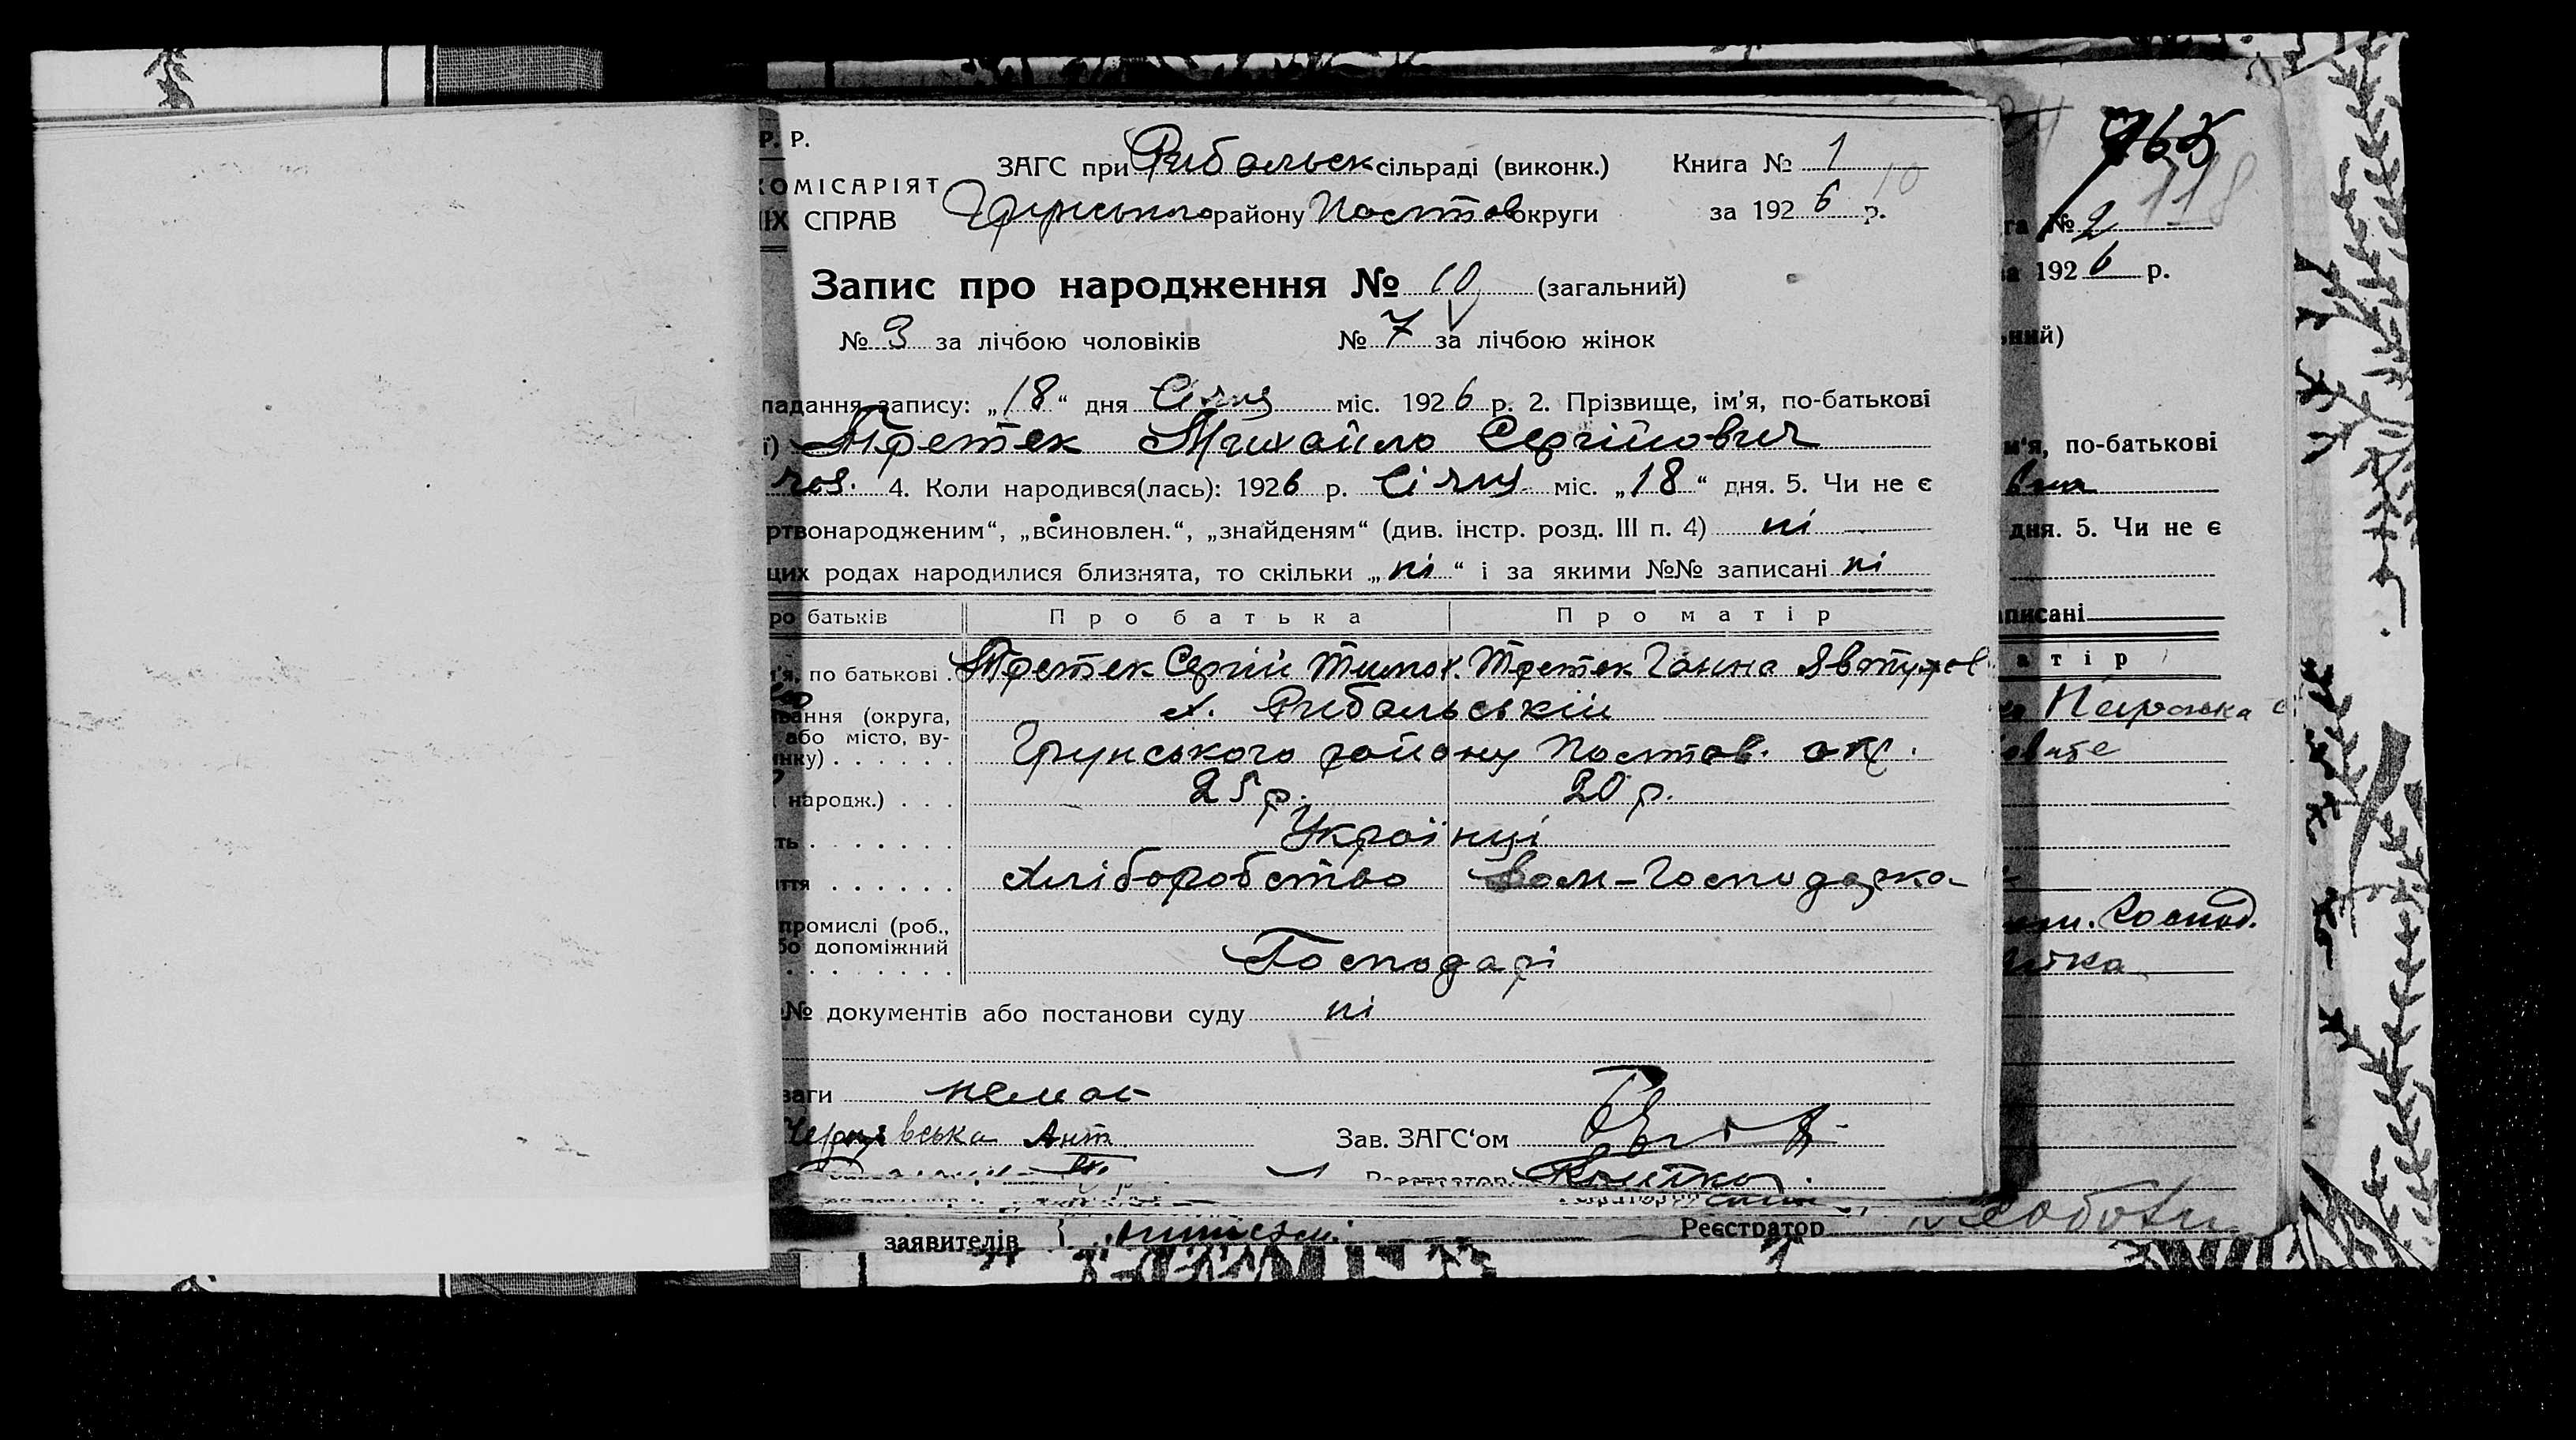 Р. Р.
ОМІСАРІЯТ
ІХ СПРАВ
ЗАГС при Рибальск сільраді (виконк.) Книга № 1
Грунського району Полтав округи за 1926 р.
10
Запис про народження № 10 (загальний)
№ 3 за лічбою чоловіків № 7 за лічбою жінок
ладання запису: „18“ дня Січня міс. 1926 р. 2. Прізвище, ім'я, по-батькові
і) Третяк Михайло Сергійович
чол. 4. Коли народився(лась): 1926 р. Січня міс. „18“ дня. 5. Чи не є
ртвонародженим“, „всиновлен.“, „знайденям“ (див. інстр. розд. III п. 4) ні
цих родах народилися близнята, то скільки „ні“ і за якими №№ записані ні
ро батьків Про батька Про матір
м'я, по батькові Третяк Сергій Тимох. Третяк Ганна
вання (округа, х. Рибальський
або місто, ву-
инку) Грунського району Полтав. окр.
народж.) 25 р. 20 р.
ть Українці
ття Хліборобство Дом-Господарка
промислі (роб.,
бо допоміжний
Господарі
№ документів або постанови суду ні
ваги немає
Ант Зав. ЗАГС‘ом
Реєстратор
заявителів Реєстратор
118
га № 2
а 1926 р.
ьний)
м'я, по-батькові
вна
дня. 5. Чи не є
аписані
атір
Господ.